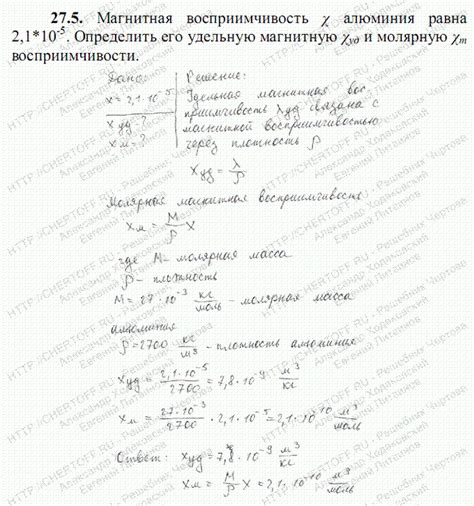 27.5. Магнитная восприимчивость χ алюминия равна
2,1*10⁻⁵. Определить его удельную магнитную χуд и молярную χm
восприимчивости.
Дано:
x = 2,1·10⁻⁵
xуд - ?
xм = ?
Решение:
Удельная магнитная вос-
приимчивость λуд связана с
магнитной восприимчивостью
через плотность ρ
xуд = λ/ρ
Молярная магнитная восприимчивость
xм = M/ρ x
где M - молярная масса
ρ - плотность
M = 27·10⁻³ кг/моль - молярная масса
алюминия
ρ = 2700 кг/м³ - плотность алюминия
xуд = 2,1·10⁻⁵/2700 = 7,8·10⁻⁹ м³/кг
xм = 27·10⁻³/2700 · 2,1·10⁻⁵ = 2,1·10⁻¹⁰ м³/моль
Ответ: xуд = 7,8·10⁻⁹ м³/кг
xм = M/ρ x = 2,1·10⁻¹⁰ м³/моль
HTTP://CHERTOFF.RU - Решебник Чертова
Александр Ходаковский
Евгений Литвинов